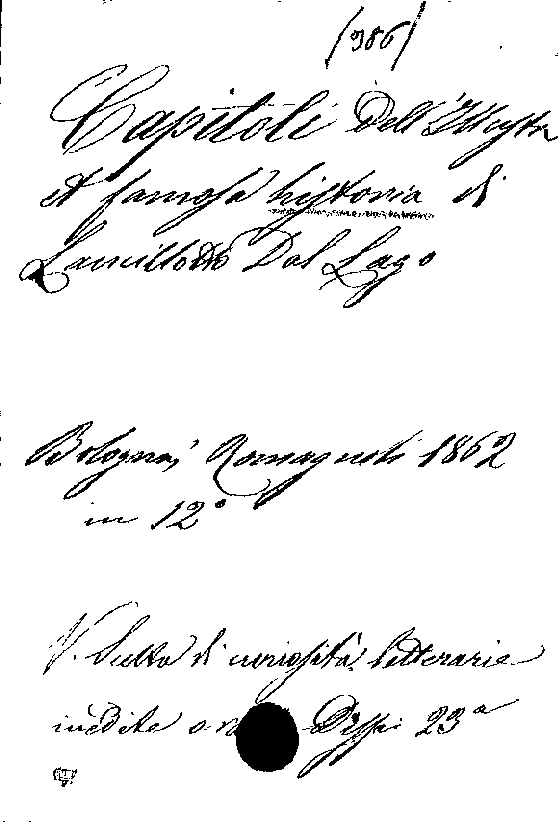 (986)
Capitoli Dell'Illustre
et famosa historia di
Lancillotto Dal Lago
Bologna, Romagnoli 1862
in 12°
V. Scelta di curiosità letterarie
inedite o Disp: 23ª